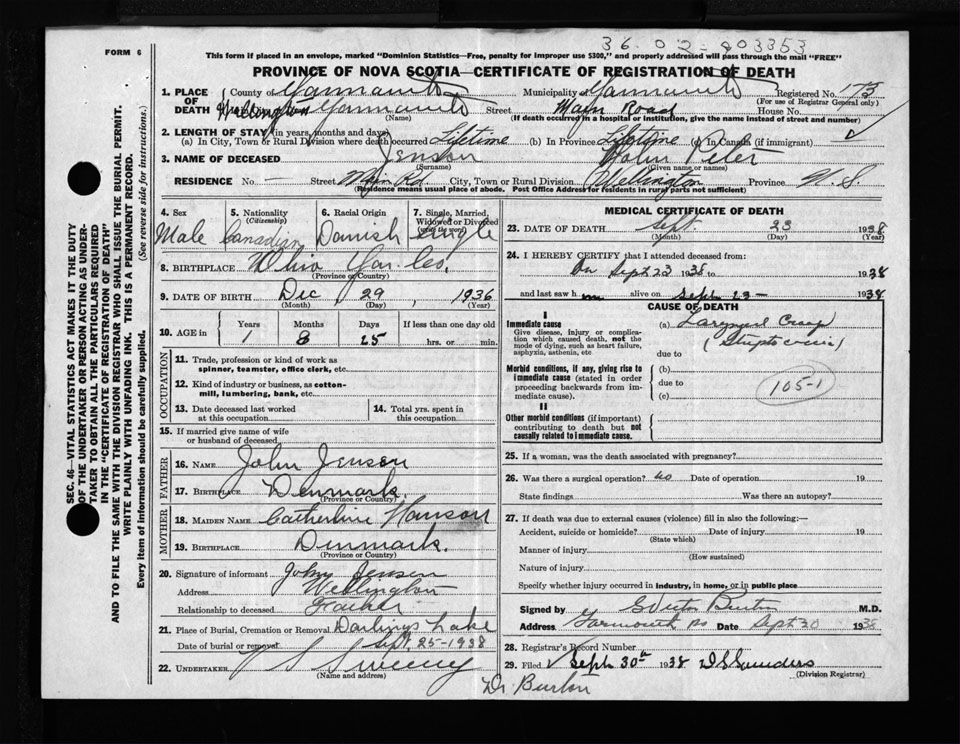 36-02-803353
FORM 6
This form if placed in an envelope, marked "Dominion Statistics—Free, penalty for improper use $300," and properly addressed will pass through the mail "FREE"
PROVINCE OF NOVA SCOTIA—CERTIFICATE OF REGISTRATION OF DEATH
1. PLACE OF DEATH County of Yarmouth Municipality of Yarmouth Registered No.
(For use of Registrar General only)
Wellington Yarmouth Street Main Road House No.
(Name) (If death occurred in a hospital or institution, give the name instead of street and number)
2. LENGTH OF STAY (in years, months and days)
(a) In City, Town or Rural Division where death occurred Lifetime (b) In Province Lifetime (c) In Canada (if immigrant)
3. NAME OF DECEASED Jenson John Peter
(Surname) (Given name or names)
RESIDENCE No. — Street Main Rd. City, Town or Rural Division Wellington Province N.S.
(Residence means usual place of abode. Post Office Address of residents in rural parts not sufficient)
SEC. 46—VITAL STATISTICS ACT MAKES IT THE DUTY
OF THE UNDERTAKER OR PERSON ACTING AS UNDER-
TAKER TO OBTAIN ALL THE PARTICULARS REQUIRED
IN THE "CERTIFICATE OF REGISTRATION OF DEATH"
AND TO FILE THE SAME WITH THE DIVISION REGISTRAR WHO SHALL ISSUE THE BURIAL PERMIT.
WRITE PLAINLY WITH UNFADING INK. THIS IS A PERMANENT RECORD.
Every item of information should be carefully supplied. (See reverse side for instructions.)
4. Sex 5. Nationality 6. Racial Origin 7. Single, Married,
(Citizenship) Widowed or Divorced
(write the word)
Male Canadian Danish Single
8. BIRTHPLACE Ohio Yar. Co.
(Province or Country)
9. DATE OF BIRTH Dec 29, 1936
(Month) (Day) (Year)
10. AGE in Years Months Days If less than one day old
1 8 25 hrs. or min.
OCCUPATION
11. Trade, profession or kind of work as
spinner, teamster, office clerk, etc.
12. Kind of industry or business, as cotton-
mill, lumbering, bank, etc.
13. Date deceased last worked
at this occupation
14. Total yrs. spent in
this occupation
15. If married give name of wife
or husband of deceased
FATHER
16. NAME John Jenson
17. BIRTHPLACE Denmark
(Province or Country)
MOTHER
18. MAIDEN NAME Catherine Hanson
19. BIRTHPLACE Denmark.
(Province or Country)
20. Signature of informant John Jensen
Address Wellington
Relationship to deceased Father
21. Place of Burial, Cremation or Removal Darlings Lake
Date of burial or removal Sept. 25-1938
22. UNDERTAKER Sweeny
(Name and address)
MEDICAL CERTIFICATE OF DEATH
23. DATE OF DEATH Sept. 23 1938
(Month) (Day) (Year)
24. I HEREBY CERTIFY that I attended deceased from:
On Sept 23 1938 to 1938
and last saw h im alive on Sept 23 — 1938
CAUSE OF DEATH
I
Immediate cause (a) Laryngeal Croup
Give disease, injury or complica-
tion which caused death, not the
mode of dying, such as heart failure,
asphyxia, asthenia, etc
due to
Morbid conditions, if any, giving rise to
immediate cause (stated in order
proceeding backwards from im-
mediate cause).
(b)
due to
(c)
105-1
II
Other morbid conditions (if important)
contributing to death but not
causally related to immediate cause.
25. If a woman, was the death associated with pregnancy?
26. Was there a surgical operation? no Date of operation 19
State findings Was there an autopsy?
27. If death was due to external causes (violence) fill in also the following:—
Accident, suicide or homicide? Date of injury 19
(State which)
Manner of injury
(How sustained)
Nature of injury
Specify whether injury occurred in industry, in home, or in public place
Signed by Burton M.D.
Address Yarmouth NS Date Sept 30 1938
28. Registrar's Record Number
29. Filed Sept 30th 1938 Saunders
(Division Registrar)
Dr. Burton